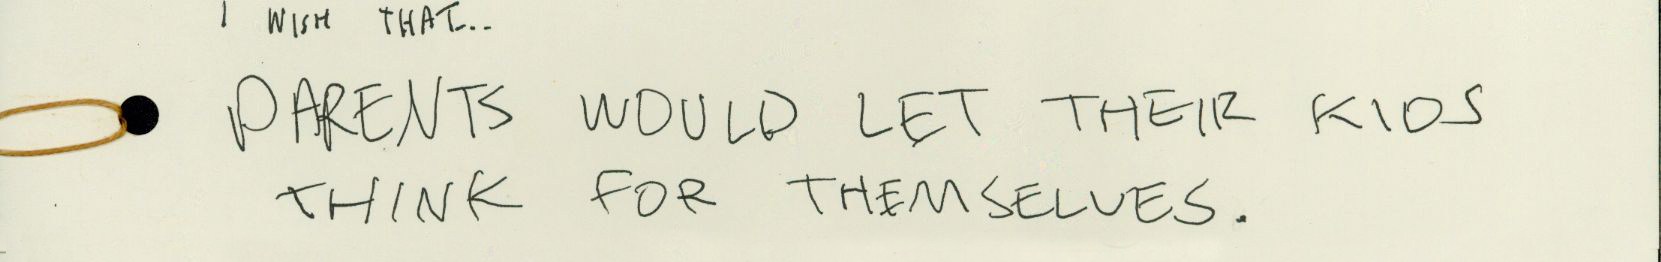 I WISH THAT..
PARENTS WOULD LET THEIR KIDS
THINK FOR THEMSELVES.